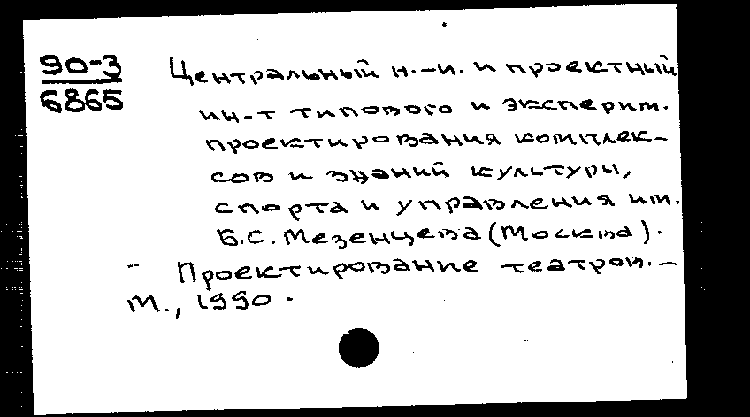 90-3
6865
Центральный н.-и. и проектный
ин-т типового и эксперим.
проектирования комплек-
сов и зданий культуры,
спорта и управления им.
Б.С. Мезенцева (Москва).
- Проектирование театров. -
М., 1990.